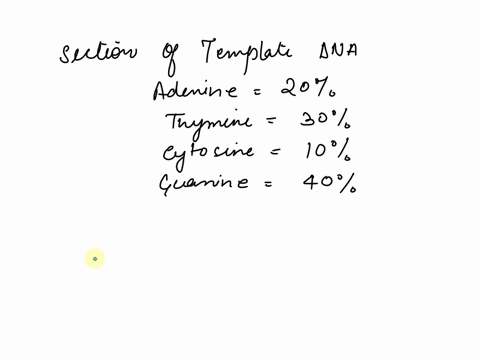 Section of Template DNA
Adenine = 20%
Thymine = 30%
Cytosine = 10%
Guanine = 40%